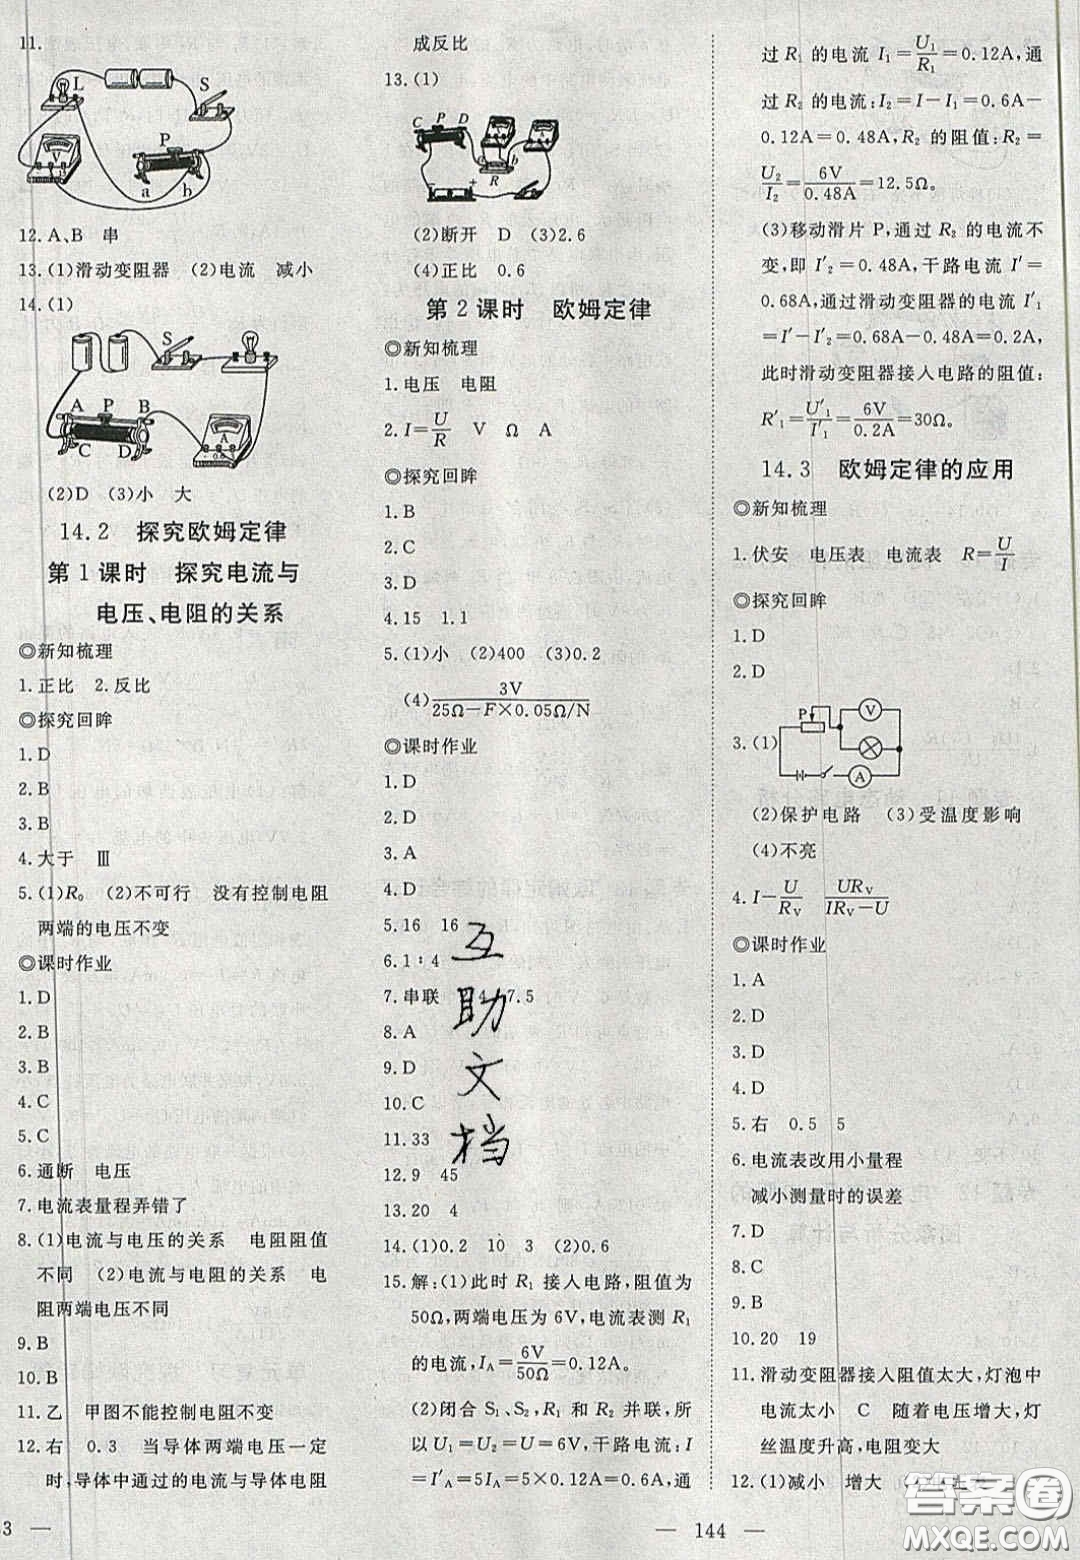 11.
L
S
V
P
a
b
12.A、B 串
13.(1)滑动变阻器 (2)电流 减小
14.(1)
S
A P B
C D
A
(2)D (3)小 大
14.2 探究欧姆定律
第1课时 探究电流与
电压、电阻的关系
◎新知梳理
1.正比 2.反比
◎探究回眸
1.D
2.B
3.B
4.大于 Ⅲ
5.(1)R₀ (2)不可行 没有控制电阻
两端的电压不变
◎课时作业
1.D
2.B
3.B
4.C
5.C
6.通断 电压
7.电流表量程弄错了
8.(1)电流与电压的关系 电阻阻值
不同 (2)电流与电阻的关系 电
阻两端电压不同
9.B
10.B
11.乙 甲图不能控制电阻不变
12.右 0.3 当导体两端电压一定
时,导体中通过的电流与导体电阻
3 —
成反比
13.(1)
C P D
a b
R
+
(2)断开 D (3)2.6
(4)正比 0.6
第2课时 欧姆定律
◎新知梳理
1.电压 电阻
2.I=U/R V Ω A
◎探究回眸
1.B
2.C
3.D
4.15 1.1
5.(1)小 (2)400 (3)0.2
(4)3V/(25Ω-F×0.05Ω/N)
◎课时作业
1.D
2.B
3.A
4.D
5.16 16
6.1:4
7.串联 4 7.5
8.A
9.D
10.C
11.33
12.9 45
13.20 4
14.(1)0.2 10 3 (2)0.6
15.解:(1)此时 R₁ 接入电路,阻值为
50Ω,两端电压为 6V,电流表测 R₁
的电流,I_A=6V/50Ω=0.12A。
(2)闭合 S₁、S₂,R₁ 和 R₂ 并联,所
以 U₁=U₂=U=6V,干路电流:I
=I′_A=5I_A=5×0.12A=0.6A,通
互
助
文
档
过 R₁ 的电流 I₁=U₁/R₁=0.12A,通
过 R₂ 的电流:I₂=I-I₁=0.6A-
0.12A=0.48A,R₂ 的阻值:R₂=
U₂/I₂=6V/0.48A=12.5Ω。
(3)移动滑片 P,通过 R₂ 的电流不
变,即 I′₂=0.48A,干路电流 I′=
0.68A,通过滑动变阻器的电流 I′₁
=I′-I′₂=0.68A-0.48A=0.2A,
此时滑动变阻器接入电路的阻值:
R′₁=U′₁/I′₁=6V/0.2A=30Ω。
14.3 欧姆定律的应用
◎新知梳理
1.伏安 电压表 电流表 R=U/I
◎探究回眸
1.D
2.D
3.(1)
P
V
A
(2)保护电路 (3)受温度影响
(4)不亮
4.I-U/R_V UR_V/(IR_V-U)
◎课时作业
1.A
2.D
3.D
4.D
5.右 0.5 5
6.电流表改用小量程
减小测量时的误差
7.D
8.C
9.B
10.20 19
11.滑动变阻器接入阻值太大,灯泡中
电流太小 C 随着电压增大,灯
丝温度升高,电阻变大
12.(1)减小 增大
— 144 —
答案圈
MXQE.COM